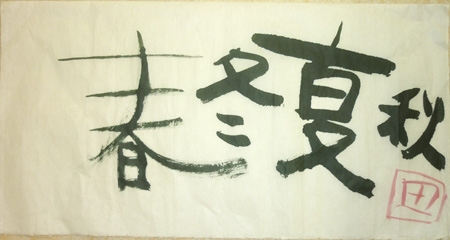 春冬夏秋
田